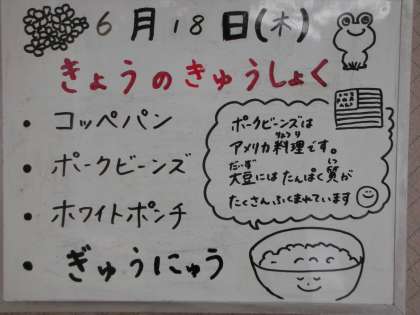 6月18日(木)
きょうのきゅうしょく
・コッペパン
・ポークビーンズ
・ホワイトポンチ
・ぎゅうにゅう
ポークビーンズは
アメリカ料理です。
大豆にはたんぱく質が
たくさんふくまれています